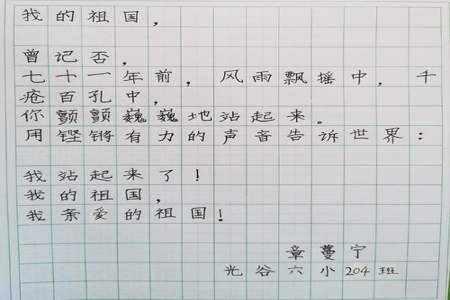 我的祖国，
曾记否，
七十一年前，风雨飘摇中，千
疮百孔中，
你颤颤巍巍地站起来。
用铿锵有力的声音告诉世界：
我站起来了！
我的祖国，
我亲爱的祖国！
章蔓宁
光谷六小204班